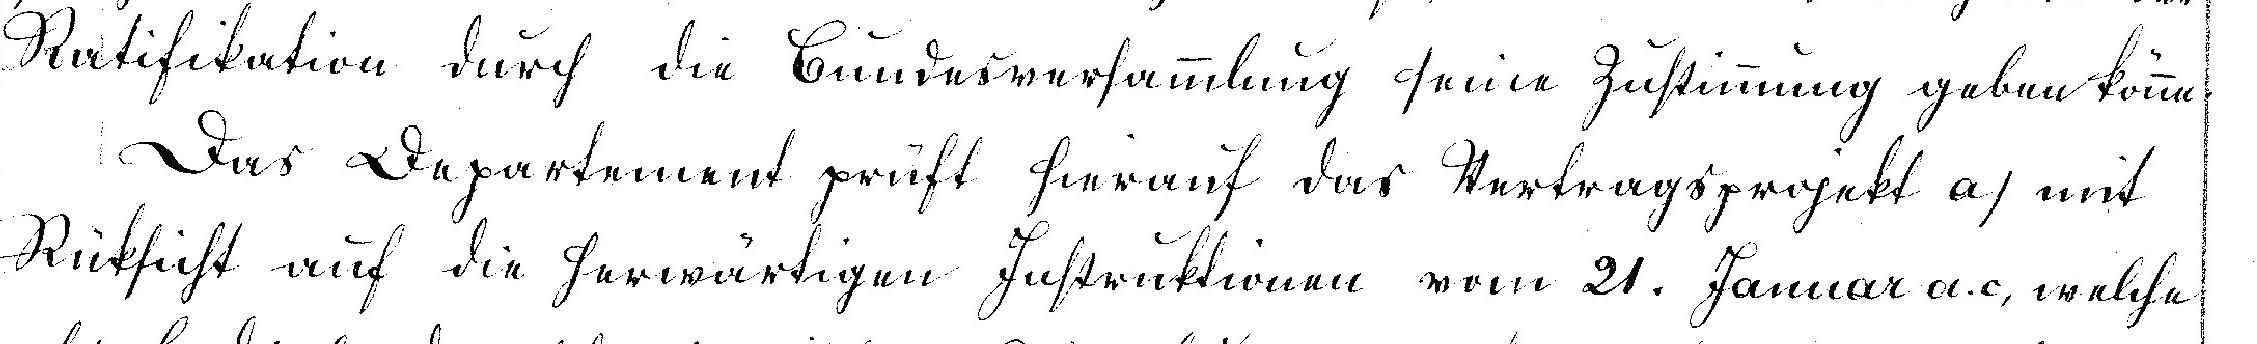 Ratifikation durch die Bundesversam̅lung seine Zustim̅ung geben kön̅e.
Das Departement prüft hierauf das Vertragsprojekt a) mit
Rüksicht auf die herwärtigen Instruktionen vom 21. Januar a.c., welche